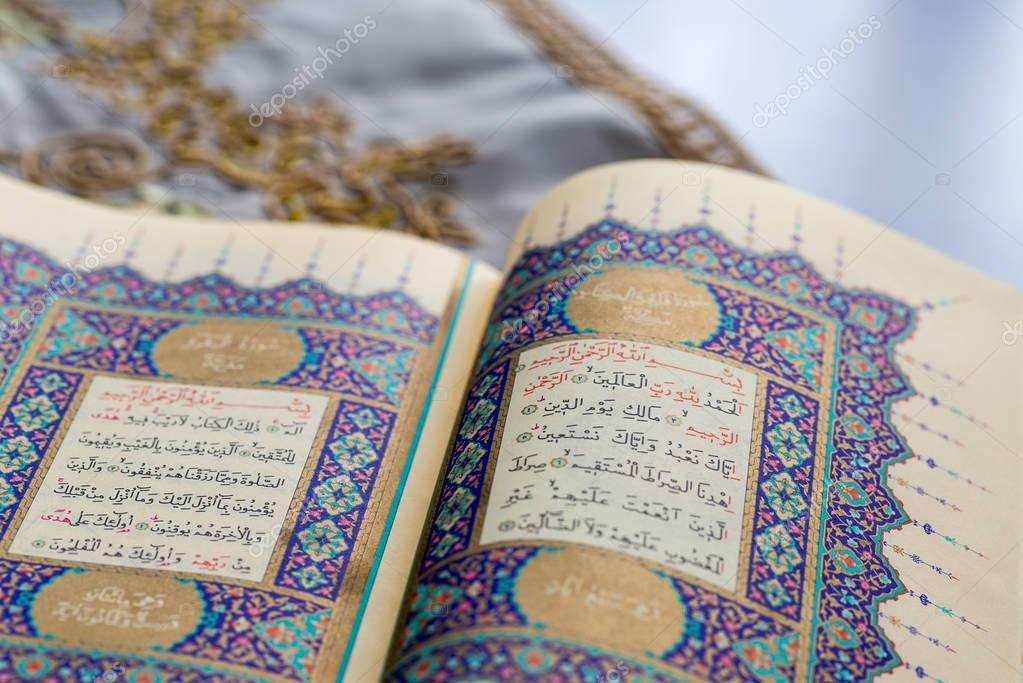 بِسْمِ اللَّهِ الرَّحْمٰنِ الرَّحِيمِ ١
اَلْحَمْدُ لِلَّهِ رَبِّ الْعَالَمِينَ ٢ اَلرَّحْمٰنِ
الرَّحِيمِ ٣ مَالِكِ يَوْمِ الدِّينِ ٤
اِيَّاكَ نَعْبُدُ وَاِيَّاكَ نَسْتَعِينُ ٥
اِهْدِنَا الصِّرَاطَ الْمُسْتَقِيمَ ٦ صِرَاطَ
الَّذِينَ اَنْعَمْتَ عَلَيْهِمْ غَيْرِ
الْمَغْضُوبِ عَلَيْهِمْ وَلَا الضَّالِّينَ ٧
سورة البقرة
مدنية
بِسْمِ اللَّهِ الرَّحْمٰنِ الرَّحِيمِ
الٓمٓ ١ ذٰلِكَ الْكِتَابُ لَا رَيْبَ فِيهِ هُدًى
لِلْمُتَّقِينَ ٢ اَلَّذِينَ يُؤْمِنُونَ بِالْغَيْبِ وَيُقِيمُونَ
الصَّلٰوةَ وَمِمَّا رَزَقْنَاهُمْ يُنْفِقُونَ ٣ وَالَّذِينَ
يُؤْمِنُونَ بِمَا اُنْزِلَ اِلَيْكَ وَمَا اُنْزِلَ مِنْ قَبْلِكَ
وَبِالْاٰخِرَةِ هُمْ يُوقِنُونَ ٤ اُولٰئِكَ عَلٰى هُدًى
مِنْ رَبِّهِمْ وَاُولٰئِكَ هُمُ الْمُفْلِحُونَ ٥
depositphotos